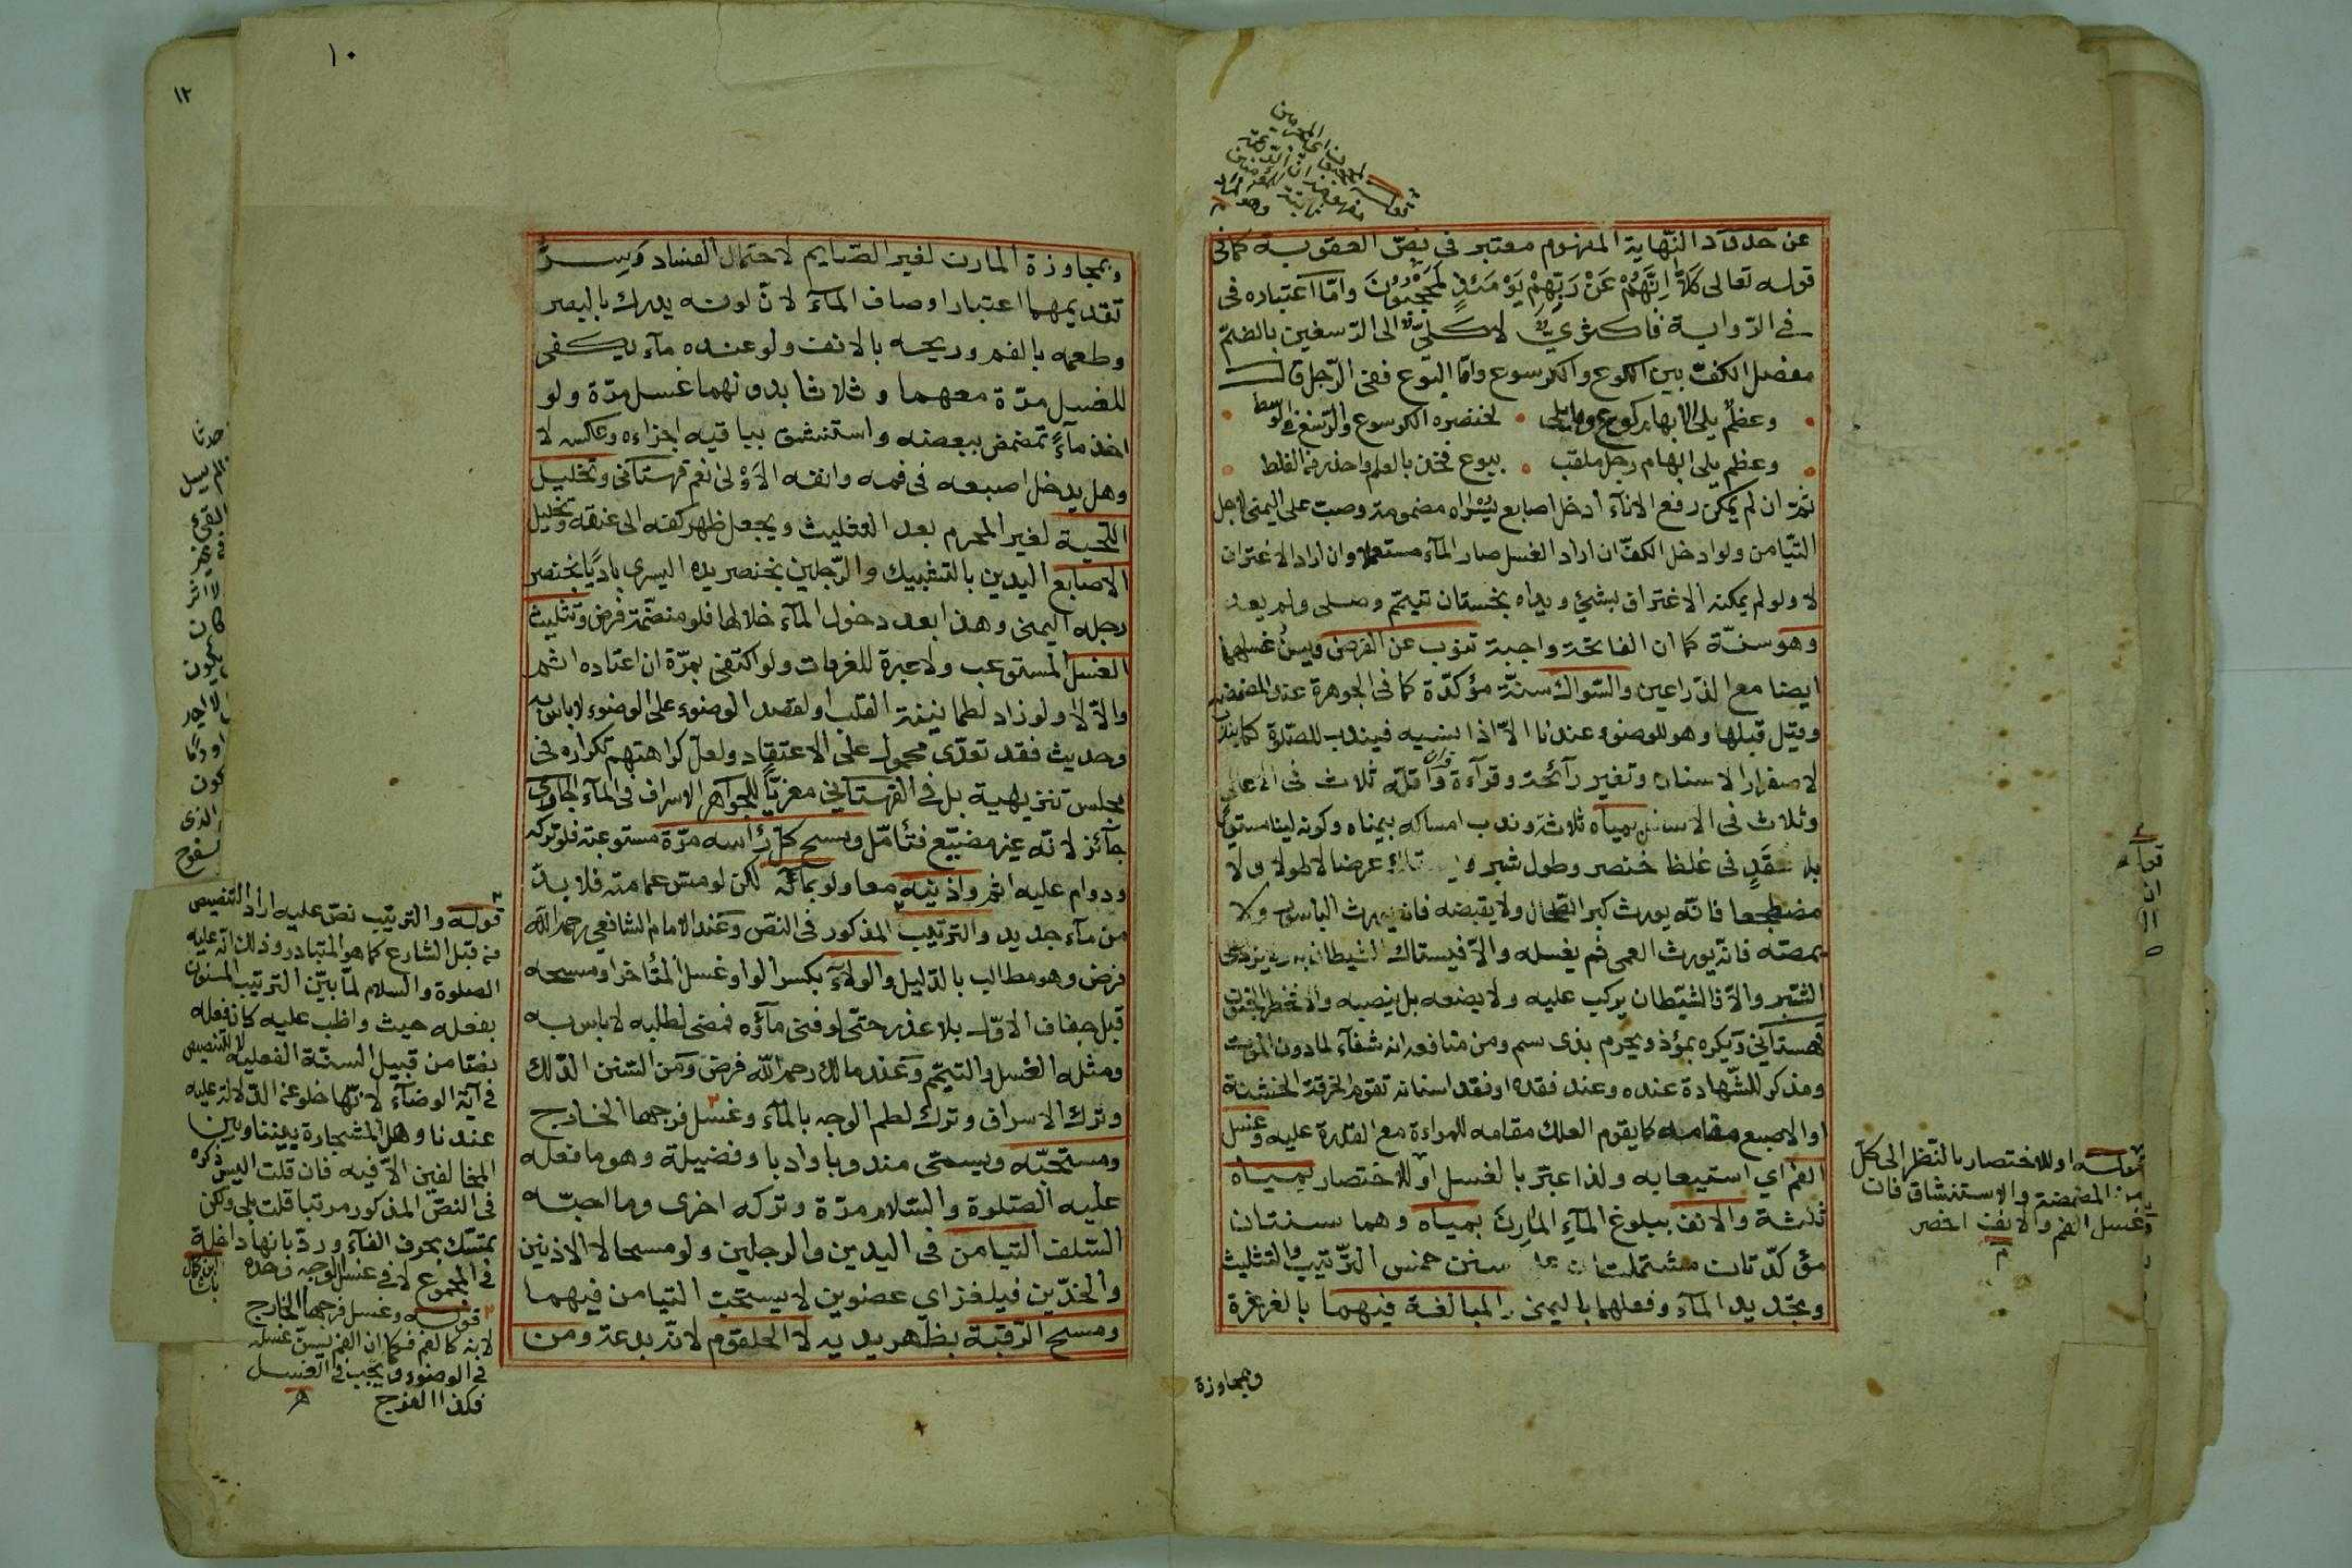 عن حدود النهاية المفهوم معتبر في نص العقوبة كما في
قوله تعالى كَلَّا اِنَّهُمْ عَنْ رَبِّهِمْ يَوْمَئِذٍ لَمَحْجُوبُونَ واما اعتباره في
في الرواية فاكثري لا كلي الى الرسغين بالضم
مفصل الكف بين الكوع والكرسوع واما البوع ففي الرجل قال
وعظم يلي الابهام كوع وما يلي لخنصره الكرسوع والرسغ في الوسط
وعظم يلي ابهام رجل ملقب ببوع فخذ بالعلم واحذر من الغلط
ثم ان لم يمكن رفع الاناء ادخل اصابع يسراه مضمومة وصب على اليمنى لاجل
التيامن ولو ادخل الكف ان اراد الغسل صار الماء مستعملا وان اراد الاغتراف
لا ولو لم يمكنه الاغتراف بشئ ويداه نجستان تيمم وصلى ولم يعد
وهو سنة كما ان الفاتحة واجبة تنوب عن الفرض ويسن غسلهما
ايضا مع الذراعين والسواك سنة مؤكدة كما في الجوهرة عند المضمضة
وقيل قبلها وهو للوضوء عندنا الا اذا نسيه فيندب للصلوة كما يندب
لاصفرار الاسنان وتغير رائحة وقرآءة واقله ثلاث في الاعالي
وثلاث في الاسفل بمياه ثلاثة وندب امساكه بيمناه وكونه لينا مستويا
بلا عقد في غلظ خنصر وطول شبر ويستاك عرضا لا طولا ولا
مضطجعا فانه يورث كبر الطحال ولا يقبضه فانه يورث الباسور ولا
يمصه فانه يورث العمى ثم يغسله والا فيستاك الشيطان به ولا يزاد على
الشبر والا فالشيطان يركب عليه ولا يضعه بل ينصبه والا فخطر الجنون
قهستاني ويكره بمؤذ ويحرم بذي سم ومن منافعه انه شفاء لما دون الموت
ومذكر للشهادة عنده وعند فقده او فقد اسنانه تقوم الخرقة الخشنة
او الاصبع مقامه كما يقوم العلك مقامه للمراءة مع القدرة عليه وغسل
الفم اي استيعابه ولذا عبر بالغسل او للاختصار بمياه
ثلثة والانف ببلوغ الماء المارن بمياه وهما سنتان
مؤكدتان مشتملتان على سنن خمس الترتيب والتثليث
وتجديد الماء وفعلهما باليمنى والمبالغة فيهما بالغرغرة
ومجاوزة
قوله او للاختصار بالنظر الى كل
من المضمضة والاستنشاق فان
غسل الفم والانف اخصر
م
١٠
١٢
وبمجاوزة المارن لغير الصايم لاحتمال الفساد وسر
تقديمهما اعتبار اوصاف الماء لان لونه يدرك بالبصر
وطعمه بالفم وريحه بالانف ولو عنده ماء يكفي
للغسل مرة معهما وثلاثا بدونهما غسل مرة ولو
اخذ ماءً تمضمض ببعضه واستنشق بباقيه اجزاءه وعكسه لا
وهل يدخل اصبعه في فمه وانفه الاولى نعم قهستاني وتخليل
اللحية لغير المحرم بعد التثليث ويجعل ظهر كفه الى عنقه وتخليل
الاصابع اليدين بالتشبيك والرجلين بخنصر يده اليسرى باديًا بخنصر
رجله اليمنى وهذا بعد دخول الماء خلالها فلو منضمة فرض وتثليث
الغسل المستوعب ولا عبرة للغرفات ولو اكتفى بمرة ان اعتاده اثم
والا لا ولو زاد لطمانينة القلب او لقصد الوضوء على الوضوء لا باس به
وحديث فقد تعدى محمول على الاعتقاد ولعل كراهتهم تكراره في
مجلس تنزيهية بل في القهستاني معزيًا للجواهر الاسراف في الماء الجاري
جائز لانه غير مضيع فتأمل ومسح كل رأسه مرة مستوعبة فلو تركه
وداوم عليه اثم واذنيه معا ولو بمائه لكن لو مس عمامته فلا بد
من ماء جديد والترتيب المذكور في النص وعند الامام الشافعي رحمه الله
فرض وهو مطالب بالدليل والولاء بكسر الواو غسل المتأخر او مسحه
قبل جفاف الاول بلا عذر حتى لو فنى ماؤه فمضى لطلبه لا باس به
ومثله الغسل والتيمم وعند مالك رحمه الله فرض ومن السنن الدلك
وترك الاسراف وترك لطم الوجه بالماء وغسل فرجها الخارج
ومستحبه ويسمى مندوبا وادبا وفضيلة وهو ما فعله
عليه الصلوة والسلام مرة وتركه اخرى وما احبه
السلف التيامن في اليدين والرجلين ولو مسحا لا الاذنين
والخدين فيلغز اي عضوين لا يستحب التيامن فيهما
ومسح الرقبة بظهر يديه لا الحلقوم لانه بدعة ومن
قوله والترتيب نص عليه اراد التنصيص
من قبل الشارع كما هو المتبادر وذلك انه عليه
الصلوة والسلام لما بين الترتيب المسنون
بفعله حيث واظب عليه كان فعله
نصا من قبيل السنة الفعلية لا التنصيص
في آية الوضآء لانها خلو عن الدلالة عليه
عندنا وهل المشجارة بيننا وبين
المخالفين الا فيه فان قلت اليس ذكره
في النص المذكور مرتبا قلت بلى ولكن
يمتسك بحرف الفآء ورد بانها داخلة
في المجموع لا في غسل الوجه وحده
ابن كمال
باشا
قوله وغسل فرجها الخارج
لانه كالفم فكما ان الفم يسن غسله
في الوضوء ويجب في الغسل
فكذا الفرج